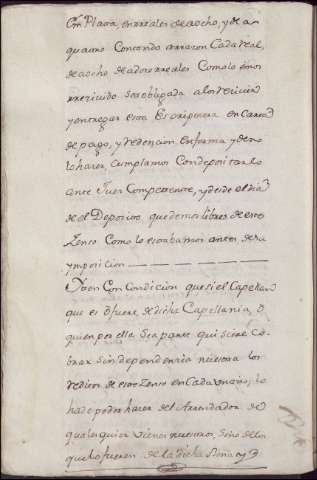 Con Plata, en rreales de aocho, y de a
quatro Contando arrazon Cada real,
de aocho de adose rreales Como lo emos
rrecivido sera obligada a los recivir
y entregar esta Escriptura en Carta
de pago, y redencion En forma, y de no
lo haser, cumplamos Con depositarlo
ante Jues Competente, y desde el dia
de el Deposito quedemos libres de este
Zenso Como lo estabamos antes de su
ymposicion
Yten Con Condicion que si el Capellan
que es o fuere de dicha Capellania, o
quien por ella Sea parte quisiere Co-
brar sin dependencia nuestra los
reditos de este Zenso en Cada un año, lo
ha de poder haser del Arrendador de
qualesquier vienes nuestros, Sino de los
que lo fueren de la dicha